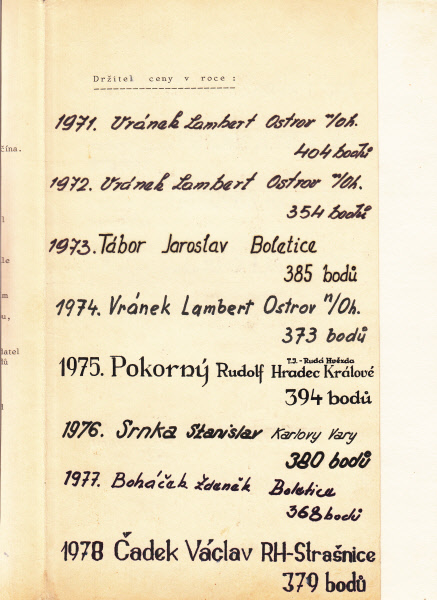 Držitel ceny v roce :
1971. Vránek Lambert Ostrov n/Oh.
404 bodů
1972. Vránek Lambert Ostrov n/Oh.
354 bodů
1973. Tábor Jaroslav Boletice
385 bodů
1974. Vránek Lambert Ostrov n/Oh.
373 bodů
T.J. - Rudá Hvězda
1975. Pokorný Rudolf Hradec Králové
394 bodů
1976. Srnka Stanislav Karlovy Vary
380 bodů
1977. Boháček Zdeněk Boletice
368 bodů
1978 Čadek Václav RH-Strašnice
379 bodů